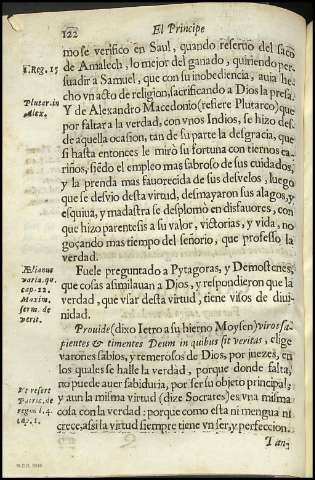 122
El Principe
mo se verifico en Saul, quando reseruo del saco
1. Reg. 15
de Amalech, lo mejor del ganado, quiriendo per-
suadir a Samuel, que con su inobediencia, auia he-
cho vn acto de religion, sacrificando a Dios la presa.
Plutar. in
Alex.
Y de Alexandro Macedonio (refiere Plutarco) que
por faltar a la verdad, con vnos Indios, se hizo des-
de aquella ocasion, tan de su parte la desgracia, que
si hasta entonces le mirò su fortuna con tiernos ca-
riños, siẽdo el empleo mas sabroso de sus cuidados,
y la prenda mas fauorecida de sus desvelos, luego
que se desvio desta virtud, desmayaron sus alagos, y
esquiua, y madastra se desplomò en disfauores, con
que hizo parentesis a su valor, victorias, y vida, no
goçando mas tiempo del señorio, que professo la
verdad.
Ælianus
varia. qu.
cap. 22.
Maxim.
serm. de
verit.
Fuele preguntado a Pytagoras, y Demostenes,
que cosas asimilauan a Dios, y respondieron que la
verdad, que vsar desta virtud, tiene visos de diui-
nidad.
Prouide (dixo Ietro a su hierno Moysen) viros sa-
pientes & timentes Deum in quibus sit veritas, elige
varones sabios, y temerosos de Dios, por juezes, en
los quales se halle la verdad, porque donde falta,
no puede auer sabiduria, por ser su objeto principal;
Ve refert
Patric. de
regno l. 4.
cap. 1.
y aun la misma virtud (dize Socrates) es vna misma
cosa con la verdad: porque como esta ni mengua ni
crece, assi la virtud siempre tiene vn ser, y perfeccion.
Tan-